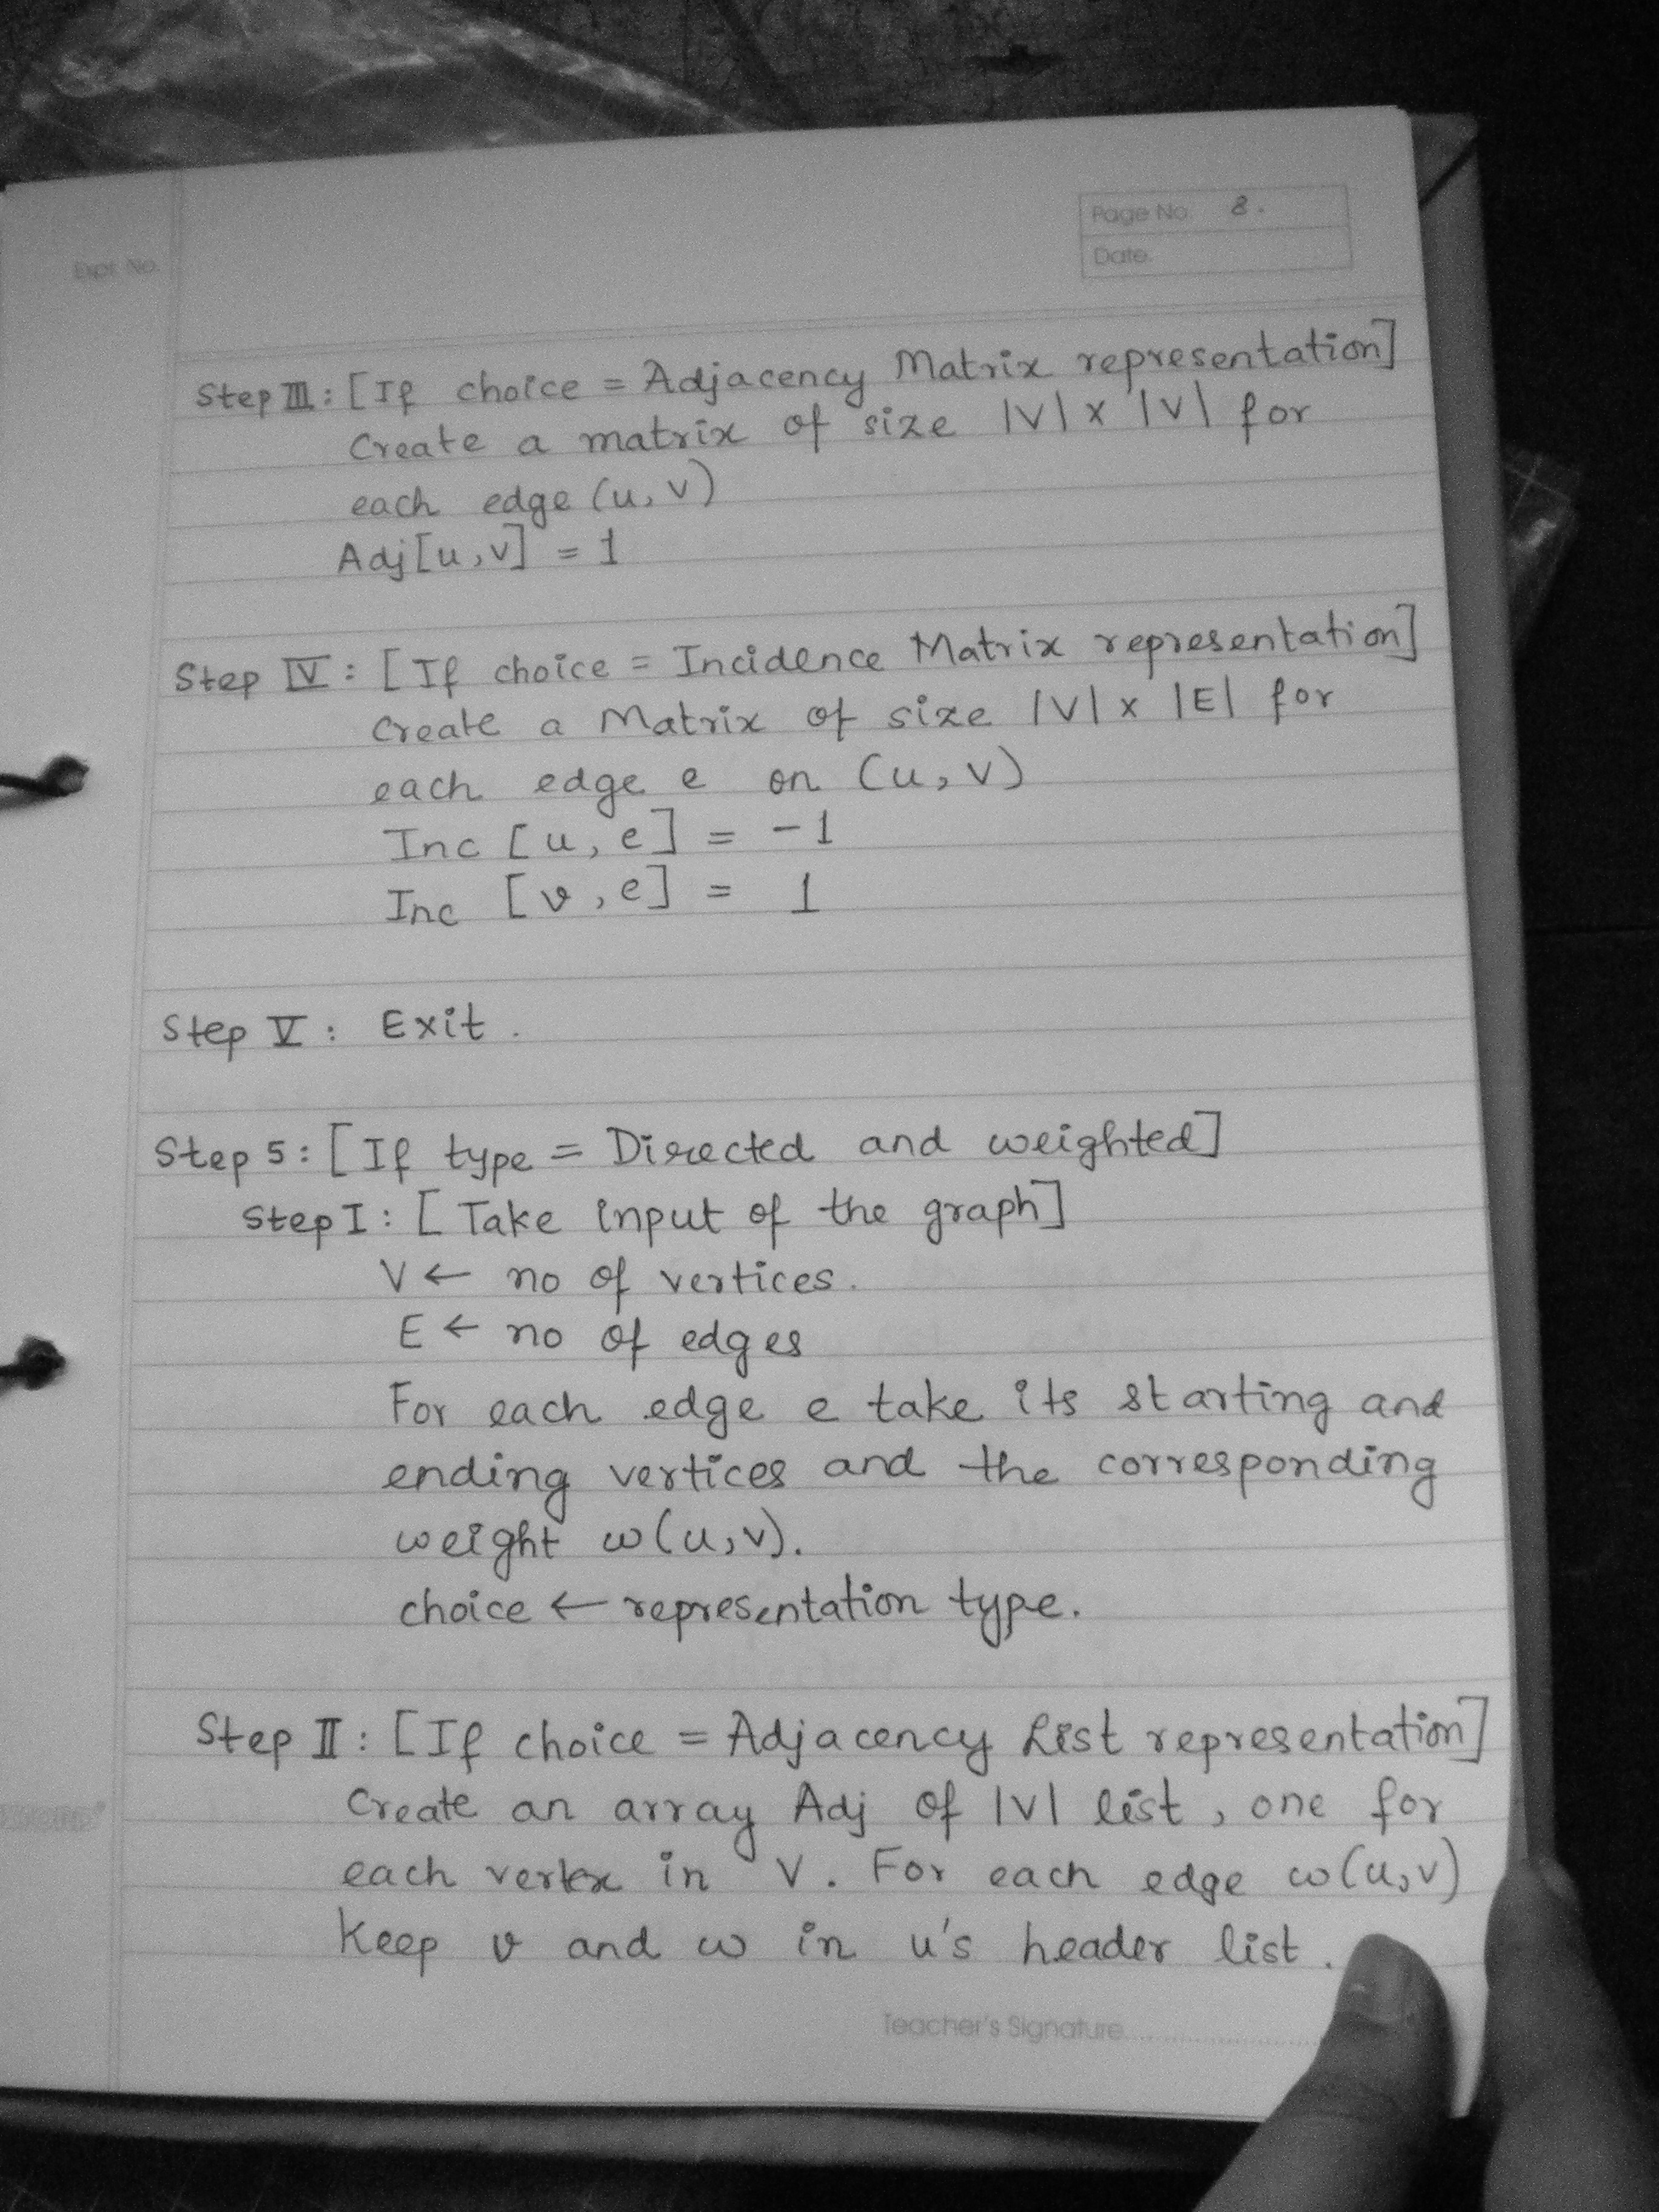 Page No. 8.
Date.
Expt. No.
Step III : [If choice = Adjacency Matrix representation]
Create a matrix of size |V| x |V| for
each edge (u, v)
Adj[u,v] = 1
Step IV : [If choice = Incidence Matrix representation]
Create a Matrix of size |V| x |E| for
each edge e on (u, v)
Inc [u, e] = -1
Inc [v, e] = 1
Step V : Exit.
Step 5 : [If type = Directed and weighted]
Step I : [Take input of the graph]
V ← no of vertices.
E ← no of edges
For each edge e take its starting and
ending vertices and the corresponding
weight w(u,v).
choice ← representation type.
Step II : [If choice = Adjacency List representation]
Create an array Adj of |V| list, one for
each vertex in V. For each edge w(u,v)
Keep v and w in u's header list.
Teacher's Signature